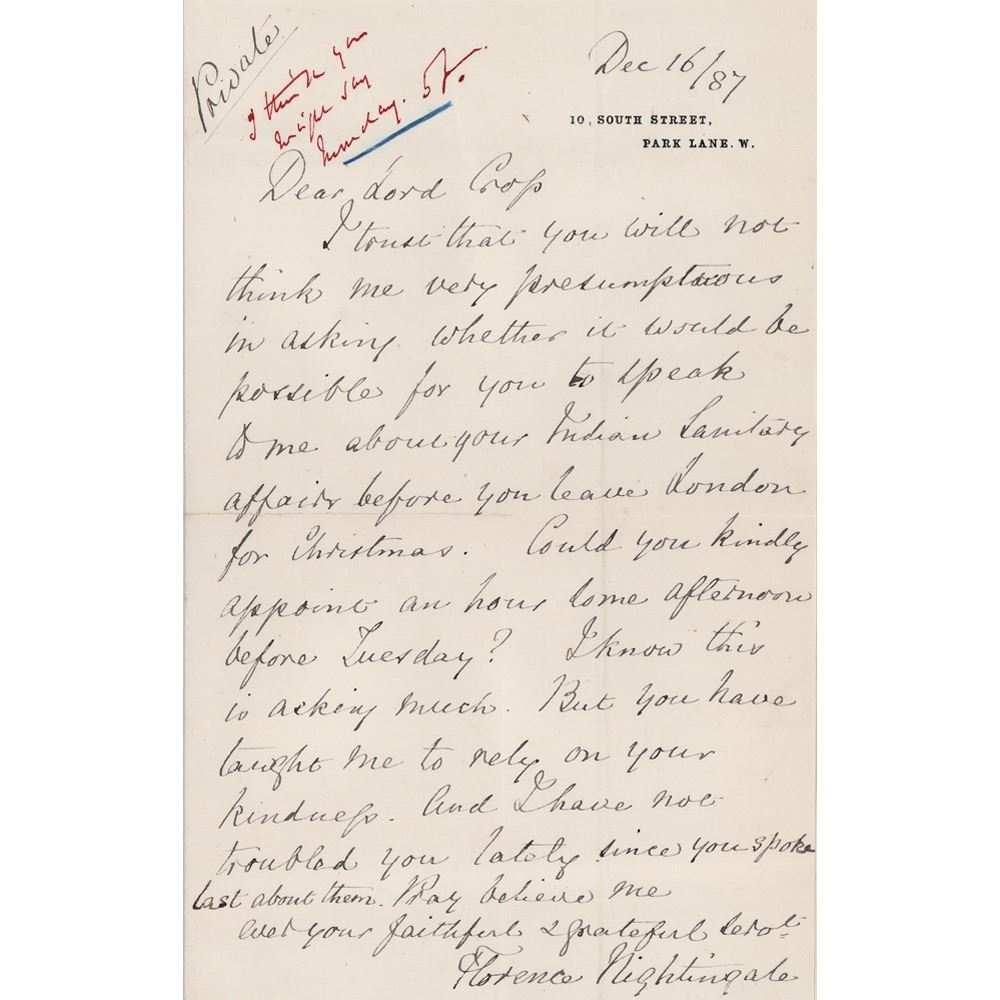 Private
I think you
might say
Monday. 5
Dec 16/87
10, SOUTH STREET,
PARK LANE. W.
Dear Lord Cross
I trust that you will not
think me very presumptuous
in asking whether it would be
possible for you to speak
to me about your Indian Sanitary
affairs before you leave London
for Christmas. Could you kindly
appoint an hour some afternoon
before Tuesday? I know this
is asking much. But you have
taught me to rely on your
kindness. And I have not
troubled you lately since you spoke
last about them. Pray believe me
ever your faithful & grateful servt
Florence Nightingale